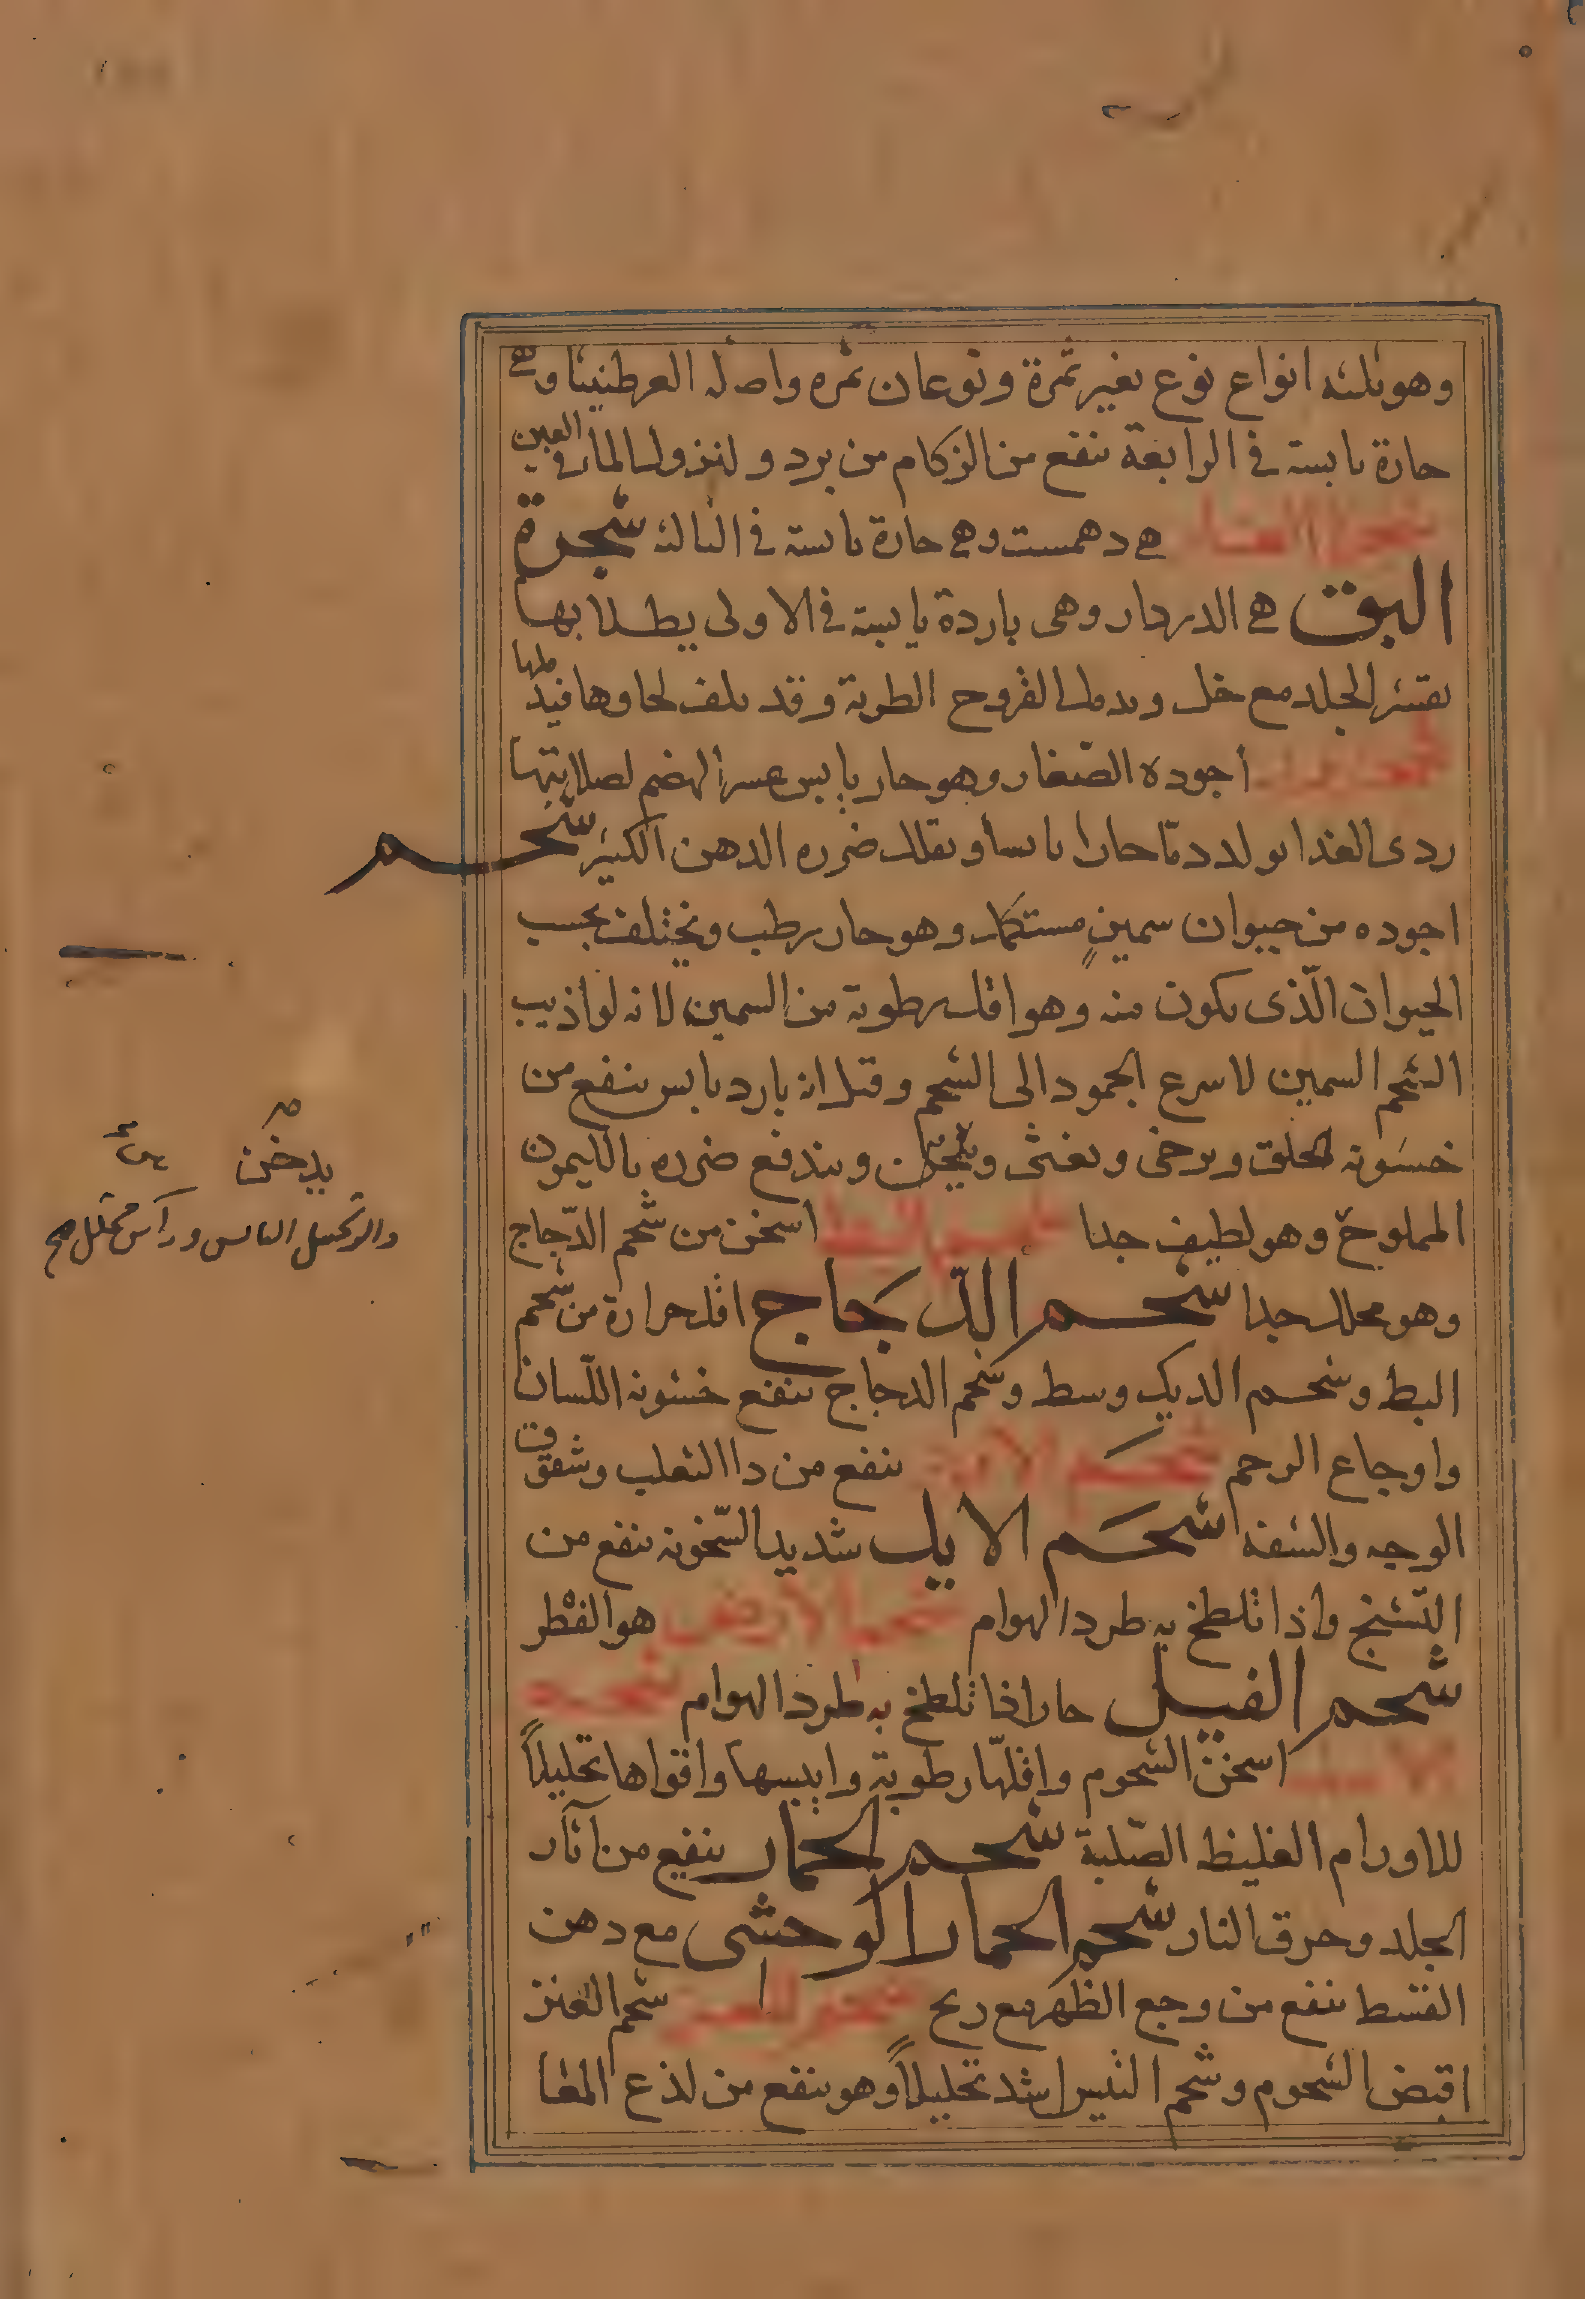 وهو ثلثه انواع نوع بغير ثمرة ونوعان ثمره واصله العرطنيثا وهى
حارة يابسة فى الرابعة تنفع من الزكام من برد ولنزول الماء فى العين
شجرة هى دهمست وهى حارة يابسة فى الثالثه شجرة
البق هى الدردار وهى باردة يابسة فى الاولى يطلا بها
تقشر الجلد مع خل ويدمل القروح الطرية وقد يلف لحاوها فيدملها
أجوده الصغار وهو حار يابس عسر الهضم لصلابتها
ردى الغذا يولد دمًا حارا يابسا ويقلل ضرره الدهن الكثير شحم
اجوده من حيوان سمينٍ مستكمل وهو حار رطب ويختلف بحسب
الحيوان الّذى يكون منه وهو اقل رطوبة من السمين لانه لو اذيب
الشحم السمين لا سرع الجمود الى الشحم وقيل انه بارد يابس ينفع من
خشونه الحلق ويرخى ويغثى ويندفع ضرره بالليمون
المملوح وهو لطيف جدا شحم البط اسخن من شحم الدّجاج
وهو محلل جدا شحم الدّجاج اقل حرارة من شحم
البط وشحم الديك وسط وشحم الدجاج ينفع خشونه اللّسان
واوجاع الرحم شحم ينفع من دا الثعلب وشقوق
الوجه والشفه شحم الايل شديد السّخونه ينفع من
التشنج واذا تلطخ به طرد الهوام شحم الارض هو الفطر
شحم الفيل حار اذا تلطخ به طرد الهوام شحم
الاسد اسخن الشحوم واقلّها رطوبة وايبسها واقواها تحليلاً
للاورام الغليظ الصّلبة شحم الحمار ينفع من آثار
الجلد وحرق النار شحم الحمار الوحشى مع دهن
القسط ينفع من وجع الظهر مع ريح شحم المعز شحم العنز
اقبض الشحوم وشحم التيس اشد تحليلاً وهو ينفع من لذع المعا
يدخن
والزنجبيل اليابس